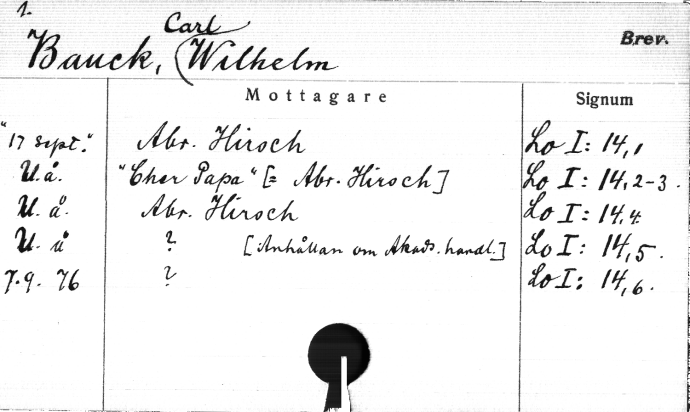 1.
Carl
Bauck, (Wilhelm
Brev.
Mottagare Signum
"17 sept." Abr. Hirsch Lo I: 14,1
U.å. "Cher Papa" [= Abr. Hirsch] Lo I: 14,2-3.
U.å. Abr. Hirsch Lo I: 14,4.
U.å ? [Anhållan om Akads. handl.] Lo I: 14,5.
7.9. 76 ? Lo I: 14,6.